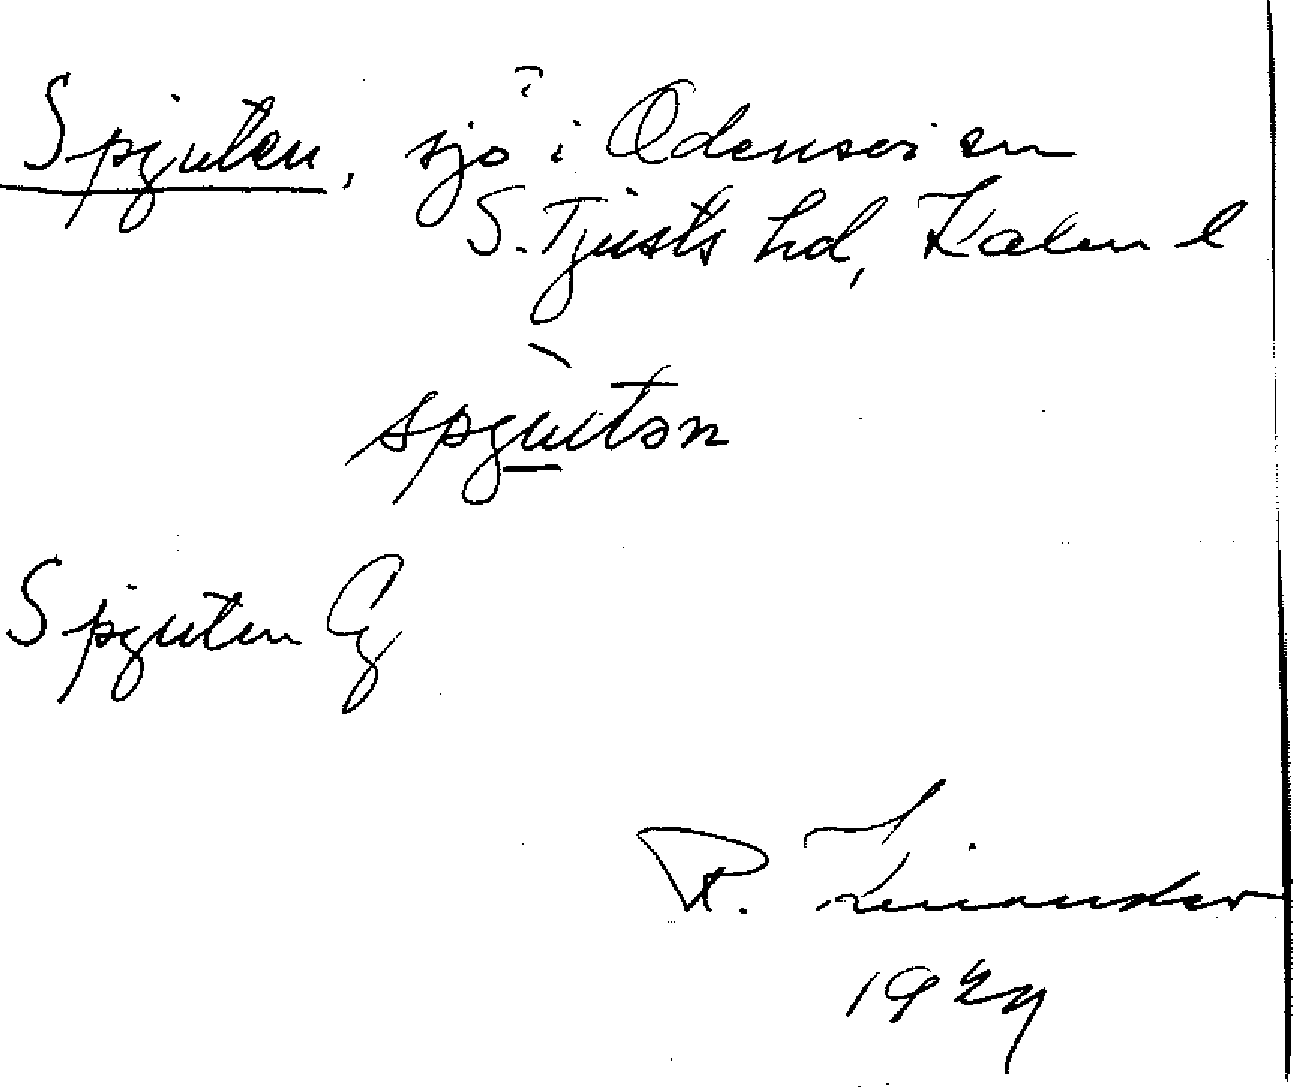 Spjuten, sjö i Odensvi sn
S. Tjusts hd, Kalm l
spjutən
Spjuten
R. Linander
19